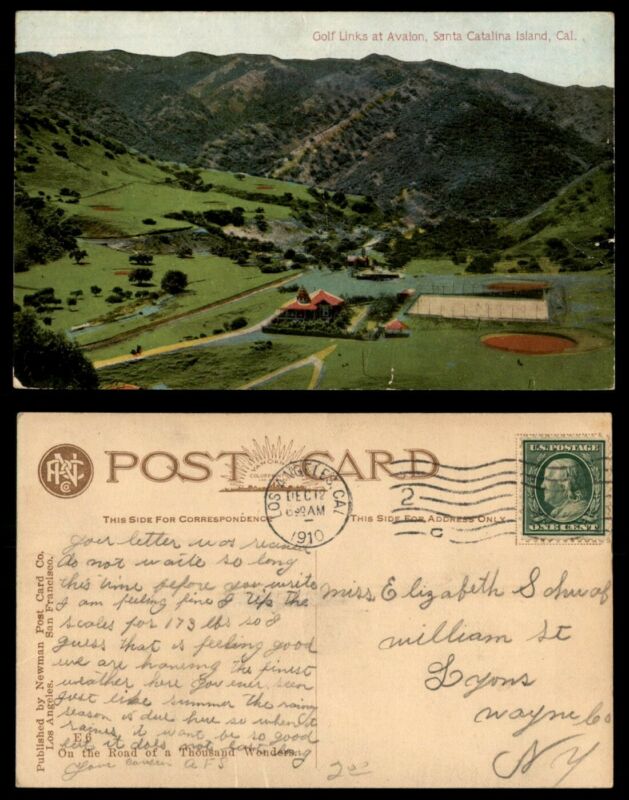 Golf Links at Avalon, Santa Catalina Island, Cal.
POST CARD
THIS SIDE FOR CORRESPONDENCE
THIS SIDE FOR ADDRESS ONLY
LOS ANGELES, CAL
DEC 12
6 30 AM
1910
2
U.S. POSTAGE
ONE CENT
Published by Newman Post Card Co.
Los Angeles. San Francisco.
your letter was
do not waite so long
this time before you write
I am feeling fine I tip the
scales for 173 lbs so I
guess that is feeling good
we are haveing the finest
weather here you ever seen
just like summer the rainy
season is due here so when it
raines it want be so good
but it does not last long
E6
On the Road of a Thousand Wonders.
your A F S
Miss Elizabeth
William St
Lyons
Wayne Co
NY